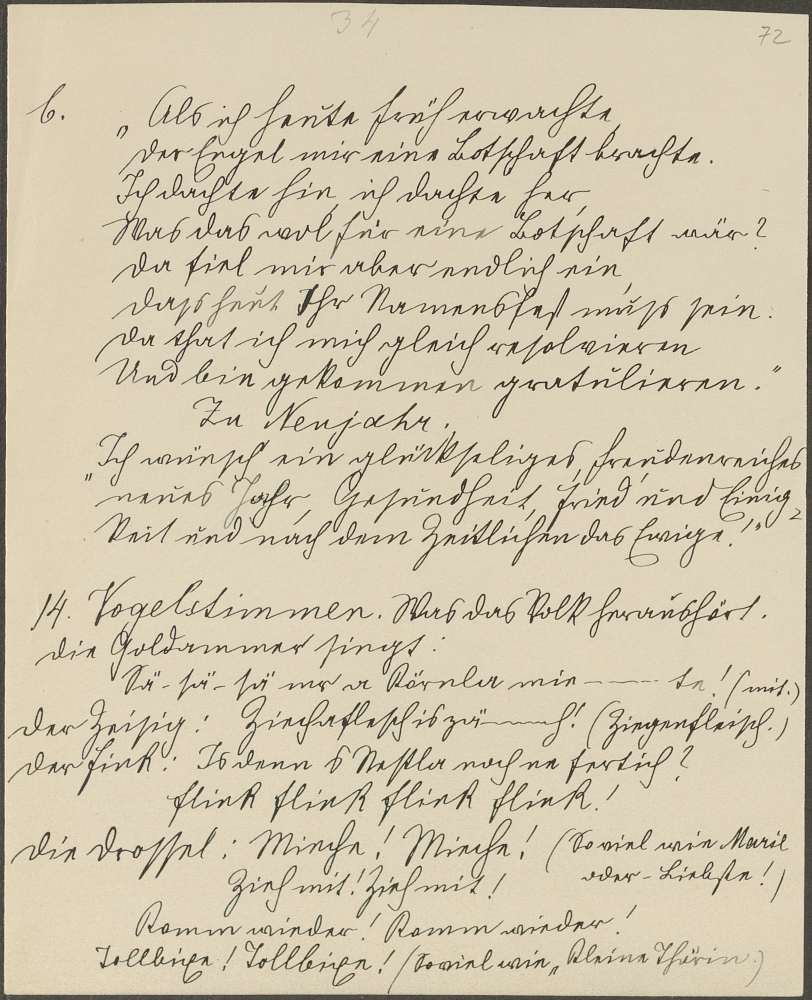 34
72
6. „Als ich heute früh erwachte,
Der Engel mir eine Botschaft brachte.
Ich dachte hin, ich dachte her,
Was das wol für eine Botschaft wär?
Da fiel mir aber endlich ein,
Dass heut Ihr Namensfest muss sein.
Da that ich mich gleich resolvieren
Und bin gekommen gratulieren."
Zu Neujahr.
„Ich wünsch ein glückseliges, freudenreiches
neues Jahr, Gesundheit, Fried und Einig-
keit und nach dem Zeitlichen das Ewige!"
14. Vogelstimmen. Was das Volk heraushört.
Die Goldammer singt:
Sä-sä-sä mr a Körnla mie——te! (mit.)
Der Zeisig: Ziechaflesch is zä——h! (Ziegenfleisch.)
Der Fink: Is denn s Nestla noch ne fertich?
flink flink flink flink!
Die Drossel: Mieche! Mieche! (Soviel wie Marie
oder Liebste!)
Zieh mit! Zieh mit!
Komm wieder! Komm wieder!
Tollbixe! Tollbixe! (Soviel wie „kleine Thörin.)